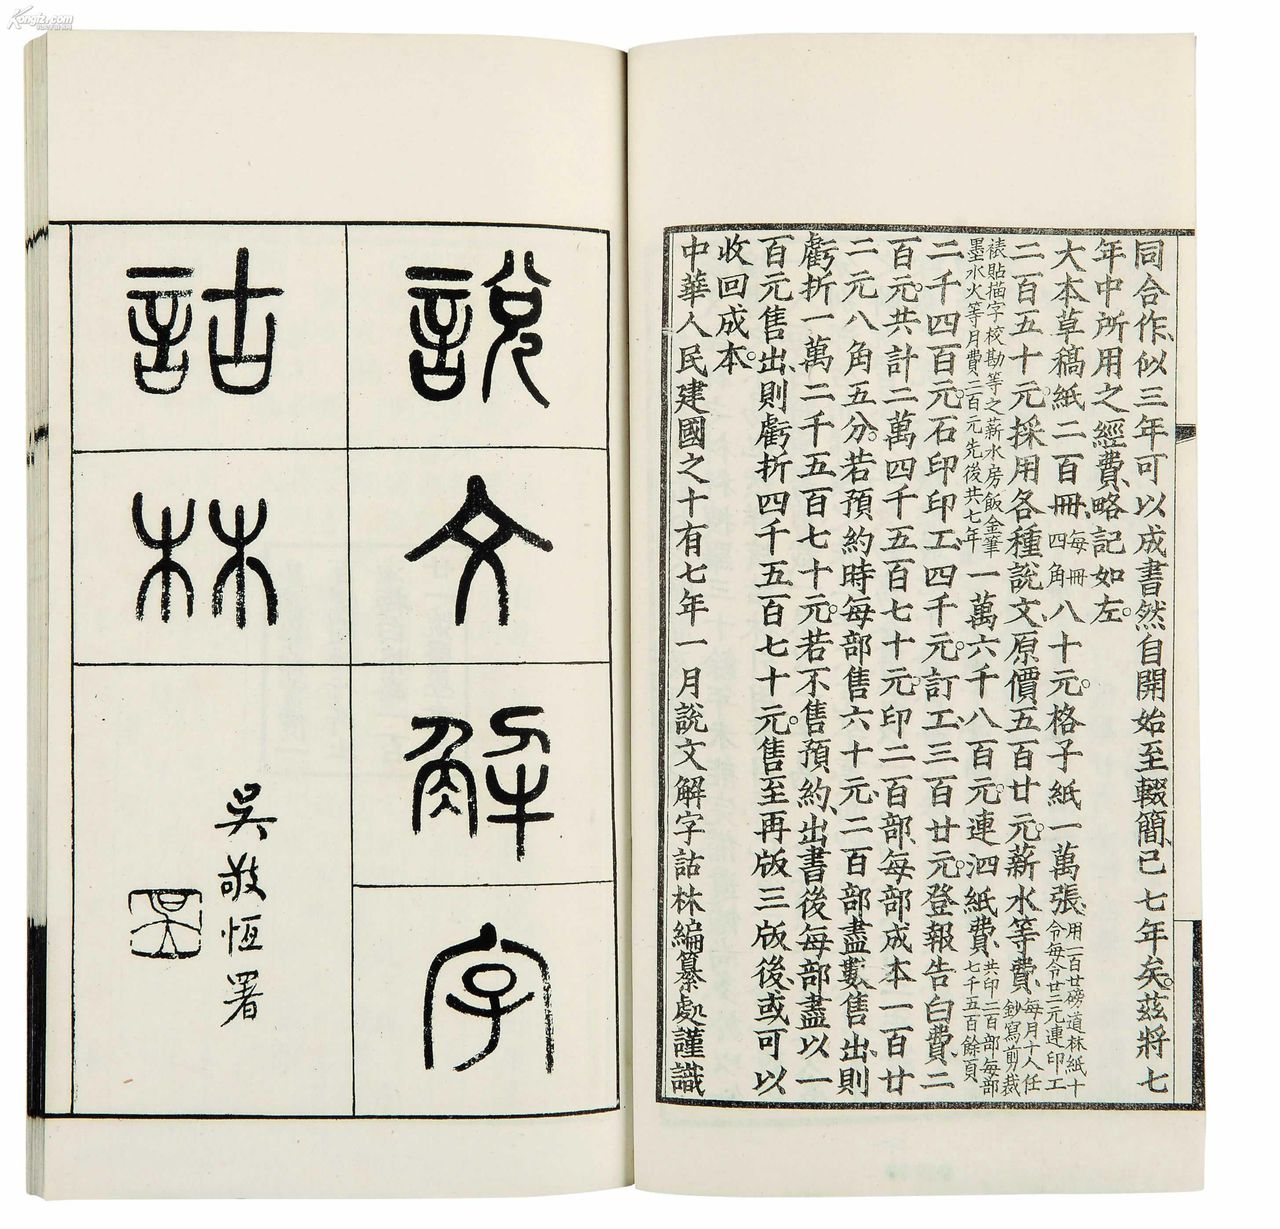 同合作、似三年可以成書、然自開始至輟簡、已七年矣。茲將七
年中所用之經費、略記如左。
大本草稿紙二百冊、每冊四角八十元。格子紙一萬張、用一百廿磅道林紙十令每令廿二元連印工
二百五十元。採用各種說文、原價五百廿元。薪水等費、每月十人任鈔寫剪裁
裱貼描字校勘等之薪水房飯金筆墨水火等月費二百元先後共七年一萬六千八百元。連泗紙費、共印二百部每部七千五百餘頁
二千四百元。石印印工、四千元。訂工、三百廿元。登報告白費、二
百元。共計二萬四千五百七十元。印二百部、每部成本一百廿
二元八角五分。若預約時每部售六十元、二百部盡數售出、則
虧折一萬二千五百七十元。若不售預約、出書後每部盡以一
百元售出、則虧折四千五百七十元。售至再版三版後、或可以
收回成本。
中華人民建國之十有七年一月說文解字詁林編纂處謹識
說文解字
詁林
吳敬恆署
吳
Kongfz.com